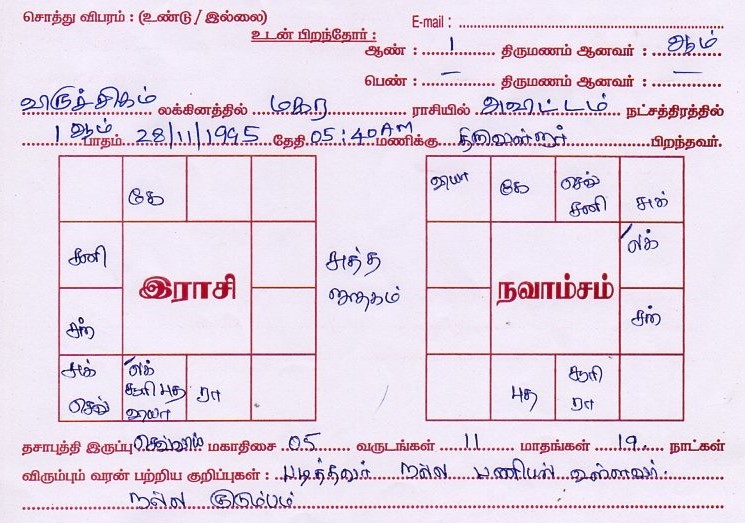 சொத்து விபரம் : (உண்டு / இல்லை)
E-mail :
உடன் பிறந்தோர் :
ஆண் : 1 திருமணம் ஆனவர் : ஆம்
பெண் : – திருமணம் ஆனவர் : –
விருச்சிகம் லக்கினத்தில் மகர ராசியில் அவிட்டம் நட்சத்திரத்தில்
1 ஆம் பாதம். 28/11/1995 தேதி 05:40 AM மணிக்கு திருவள்ளூர் பிறந்தவர்.
கே
சனி
இராசி
சந்
சுக் செவ்
லக் சூரி புத வியா
ரா
சுத்த ஜாதகம்
வியா
கே
செவ் சனி
சுக்
லக்
நவாம்சம்
சந்
புத
சூரி ரா
தசாபுத்தி இருப்பு செவ்வாய் மகாதிசை 05 வருடங்கள் 11 மாதங்கள் 19 நாட்கள்
விரும்பும் வரன் பற்றிய குறிப்புகள் : படித்தவர் நல்ல பணியில் உள்ளவர்.
நல்ல குடும்பம்